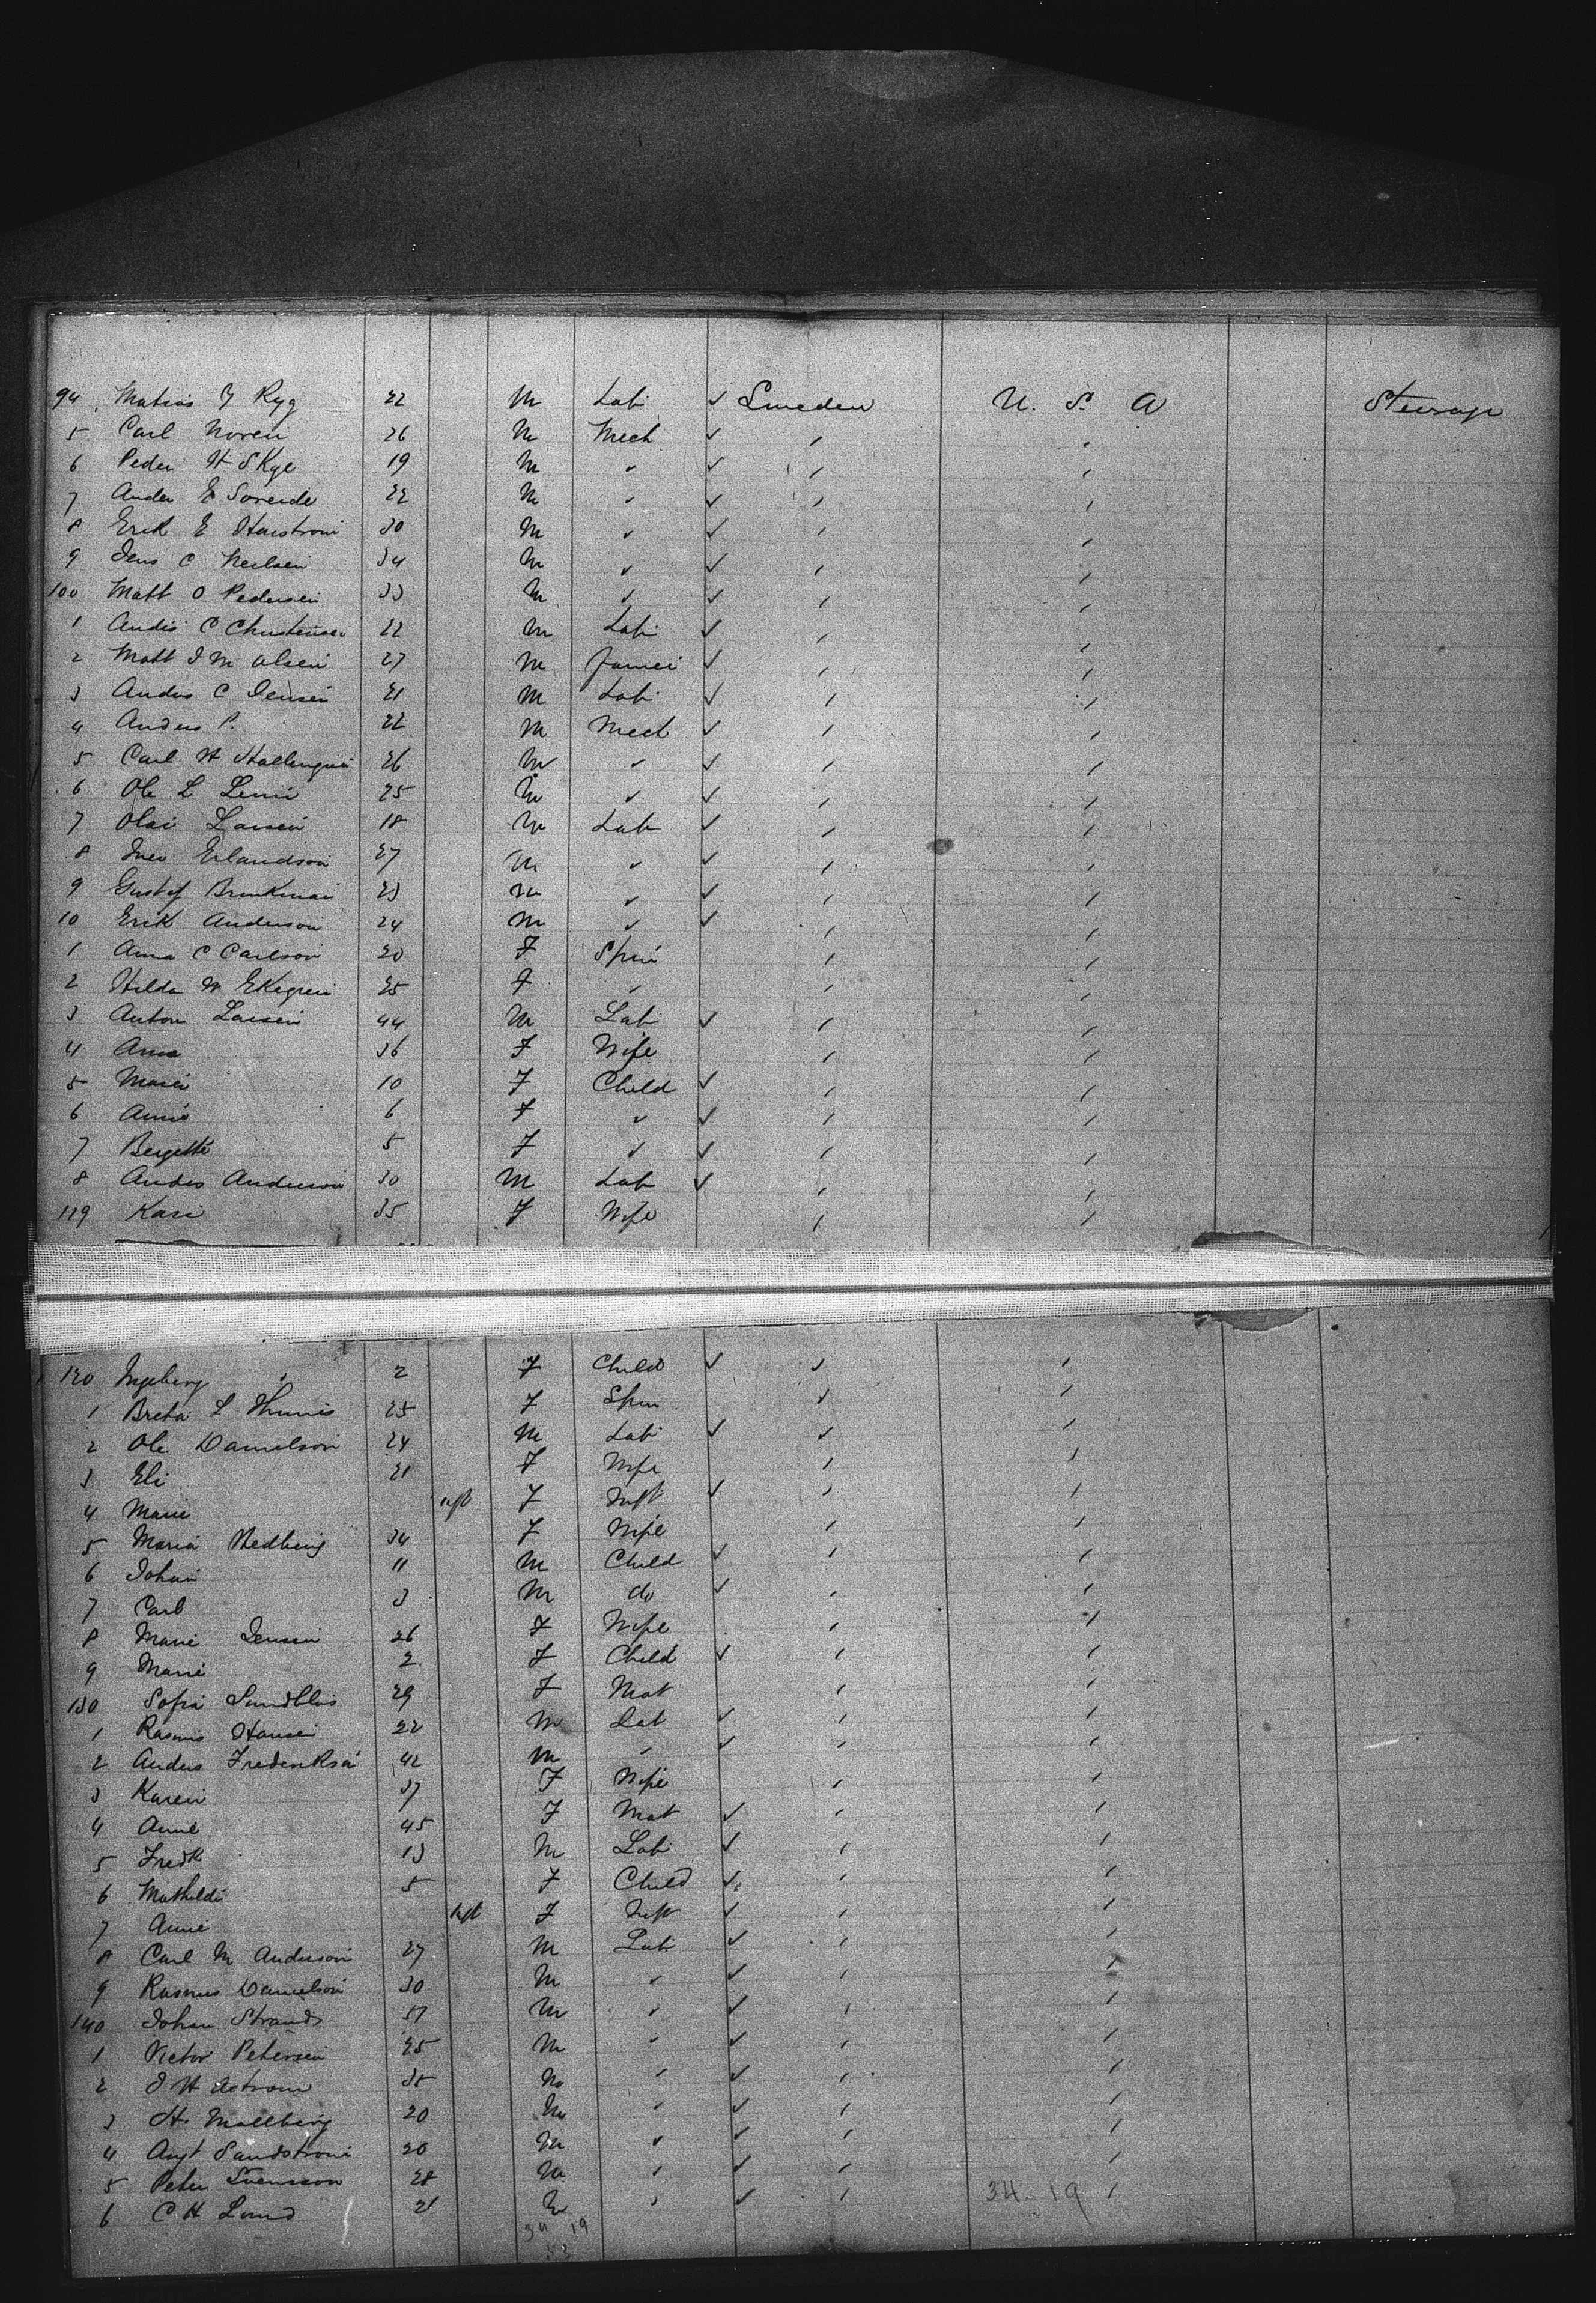 94 Matias Y Ryg 22 M Lab ✓ Sweden U. S. A Steerage
5 Carl Noren 26 M Mech ✓
6 Peder H Skye 19 M ✓
7 Ander E 22 M ✓
8 Erik E 30 M ✓
9 Jens C Neilsen 34 M ✓
100 Matt O Pedersen 33 M ✓
1 Andis C Christensen 22 M Lab ✓
2 Matt J M Olsen 27 M ✓
3 Andes C Jensen 21 M Lab ✓
4 Anders P. 22 M Mech ✓
5 Carl H 26 M ✓
6 Ole L 25 M ✓
7 Olai Larsen 18 M Lab ✓
8 Erlandson 27 M ✓
9 Gustaf Brinkman 23 M ✓
10 Erik Anderson 24 M ✓
1 Anna C Carlson 20 F Spin
2 Hilda W Ekegren 25 F
3 Anton Larsen 44 M Lab ✓
4 Ana 36 F Wife
5 Maria 10 F Child ✓
6 Annie 6 F ✓
7 Bergette 5 F ✓
8 Andes Anderson 30 M Lab ✓
119 Kari 35 F Wife
120 Ingeborg 2 F Child ✓
1 Breta L 25 F Spin
2 Ole Danielson 24 M Lab ✓
3 Eli 21 F Wife
4 Marie inft F Inft ✓
5 Maria Hedberg 34 F Wife
6 Johan 11 M Child ✓
7 Carl 3 M do ✓
8 Marie Jensen 26 F Wife
9 Marie 2 F Child ✓
130 Sofia 29 F Mat
1 Rasmus Hansen 22 M Lab ✓
2 Anders Frederiksen 42 M ✓
3 Karen 37 F Wife
4 Anne 45 F Mat ✓
5 Fredk 13 M Lab ✓
6 Mathilde 5 F Child ✓
7 Annie inft F Inft ✓
8 Carl M Anderson 27 M Lab ✓
9 Rasmus Danielson 30 M ✓
140 Johan Strand M ✓
1 Victor Petersen 25 M ✓
2 35 M ✓
3 H. Mallberg 20 M ✓
4 Augt Sandstrom 20 M ✓
5 Peter Svensson 28 M ✓
6 C H Lund 21 M ✓
34 19 34. 19
53